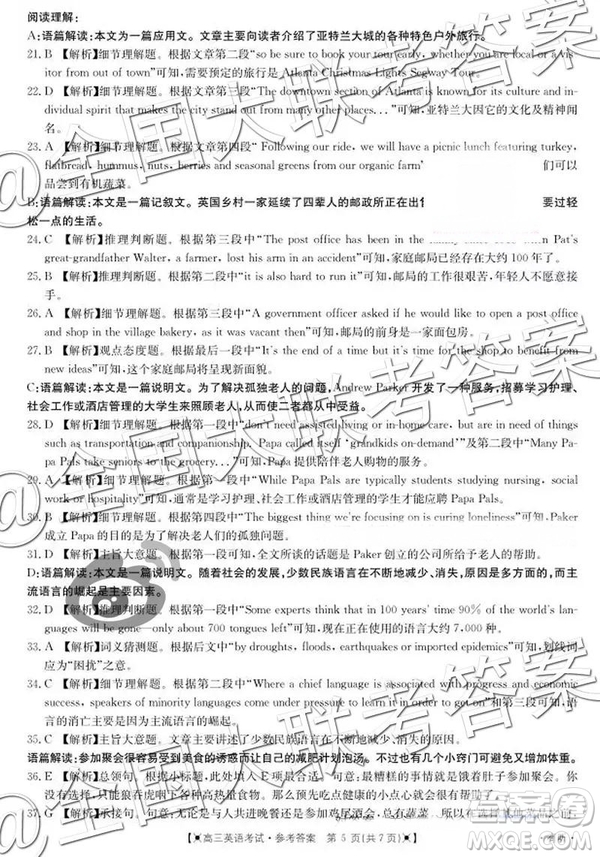 阅读理解:
A:语篇解读:本文为一篇应用文。文章主要向读者介绍了亚特兰大城的各种特色户外旅行。
21. B 【解析】细节理解题。根据第二段中“so be sure to book your tour early, whether you are local or a vis-
itor from out of town”可知,需要预定的旅行是 Atlanta Christmas Lights Segway Tour。
22. D 【解析】细节理解题。根据第三段中“The downtown section of Atlanta is known for its culture and in-
dividual spirit that makes the city stand out from many other places...”可知,亚特兰大因它的文化及精神闻
名。
23. A 【解析】细节理解题。根据第四段中“Following our ride, we will have a picnic lunch featuring turkey,
flatbread, hummus, nuts, berries and seasonal greens from our organic farm” 们可以
品尝到有机蔬菜。
B:语篇解读:本文是一篇记叙文。英国乡村一家延续了四辈人的邮政所正在出 要过轻
松一点的生活。
24. C 【解析】推理判断题。根据第三段中“The post office has been in the when Pat's
great-grandfather Walter, a farmer, lost his arm in an accident”可知,家庭邮局已经存在大约 100 年了。
25. B 【解析】推理判断题。根据第二段中“it is also hard to run it”可知,邮局的工作很艰苦,年轻人不愿意接
手。
26. A 【解析】细节理解题。根据第三段中“A government officer asked if he would like to open a post office
and shop in the village bakery, as it was vacant then”可知,邮局的前身是一家面包房。
27. B 【解析】观点态度题。根据最后一段中“It's the end of a time but it's time for the shop to benefit from
new ideas”可知,这个家庭邮局将呈现新面貌。
C:语篇解读:本文是一篇说明文。为了解决孤独老人的问题,Andrew Parker 开发了一种服务,招募学习护理、
社会工作或酒店管理的大学生来照顾老人,从而使二者都从中受益。
28. D 【解析】细节理解题。根据第一段中“don't need assisted living or in-home care, but are in need of things
such as transportation and companionship. Papa called itself ‘grandkids on-demand’”及第二段中“Many Pa-
pa Pals take seniors to the grocery...”可知,Papa 提供陪伴老人购物的服务。
29. A 【解析】细节理解题。根据第三段中“While Papa Pals are typically students studying nursing, social
work or hospitality”可知,通常是学习护理、社会工作或酒店管理的学生才能应聘 Papa Pals。
30. B 【解析】细节理解题。根据第四段中“The biggest thing we're focusing on is curing loneliness”可知,Paker
成立 Papa 的目的是为了解决老人们的孤独问题。
31. D 【解析】主旨大意题。根据第一段可知,全文所谈的话题是 Paker 创立的公司所给予老人的帮助。
D:语篇解读:本文是一篇说明文。随着社会的发展,少数民族语言在不断地减少、消失,原因是多方面的,而主
流语言的崛起是主要因素。
32. D 【解析】推理判断题。根据第一段中“Some experts think that in 100 years' time 90% of the world's lan-
guages will be gone—only about 700 tongues left”可知,现在世界上大约存在的语言大约为 7,000 种。
33. A 【解析】词义猜测题。根据后文中“drought, flooding, earthquakes or imported epidemics”可知,画线词
应为“困扰”之意。
34. C 【解析】细节理解题。根据第二段中“Where a chief language is associated with progress and economic
success, speakers of minor languages come under pressure to learn it in order to get ahead”和第三段可知,语
言的消失主要是因为主流语言的崛起。
35. C 【解析】主旨大意题。文章主要讲述了少数民族语言在不断地减少、消失的原因。
语篇解读:参加聚会很容易受到美食的诱惑而让自己的减肥计划泡汤。不过也有几个小窍门可避免又增加体重。
36. E 【解析】总领句。根据小标题可知,此处选 E 项最合适。一般,最糟糕的事情就是饿着肚子参加聚会。
37. G
【高三英语考试·参考答案 第 5 页(共 7 页)】
@全国大联考答案